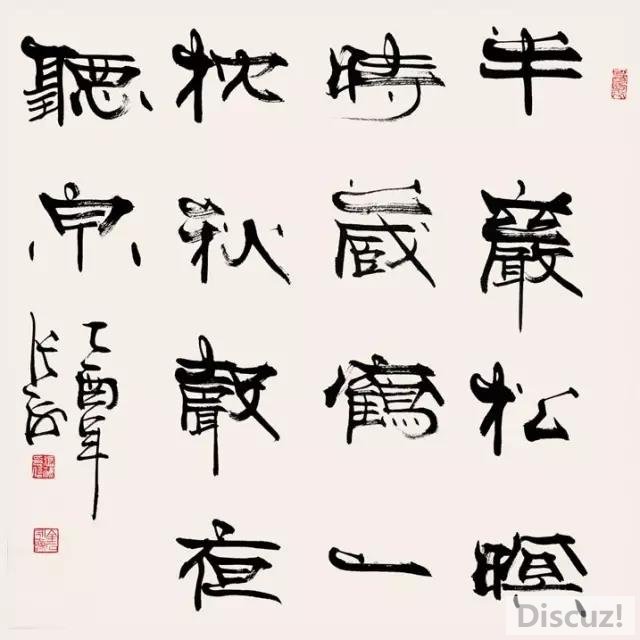 半巖松暝
時藏鶴一
枕秋聲夜
聽泉
乙酉年
张海
Discuz!